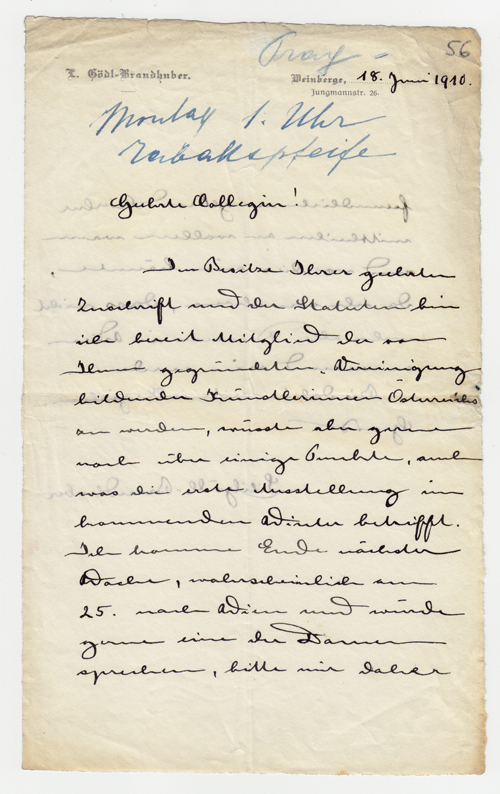 Prag =
56
L. Gödl-Brandhuber.
Weinberge, 18. Juni 1910.
Jungmannstr. 26.
Montag 1. Uhr
Tabakspfeife
Geehrte Collegin!
Im Besitze Ihrer geehrten
Zuschrift und der Statuten bin
ich bereit Mitglied der von
Ihnen gegründeten Vereinigung
bildender Künstlerinnen Österreichs
zu werden, wüsste aber gerne
noch über einige Punkte, auch
was die erste Ausstellung im
kommenden Winter betrifft.
Ich komme Ende nächster
Woche, wahrscheinlich am
25. nach Wien und würde
gerne eine der Damen
sprechen, bitte mir daher